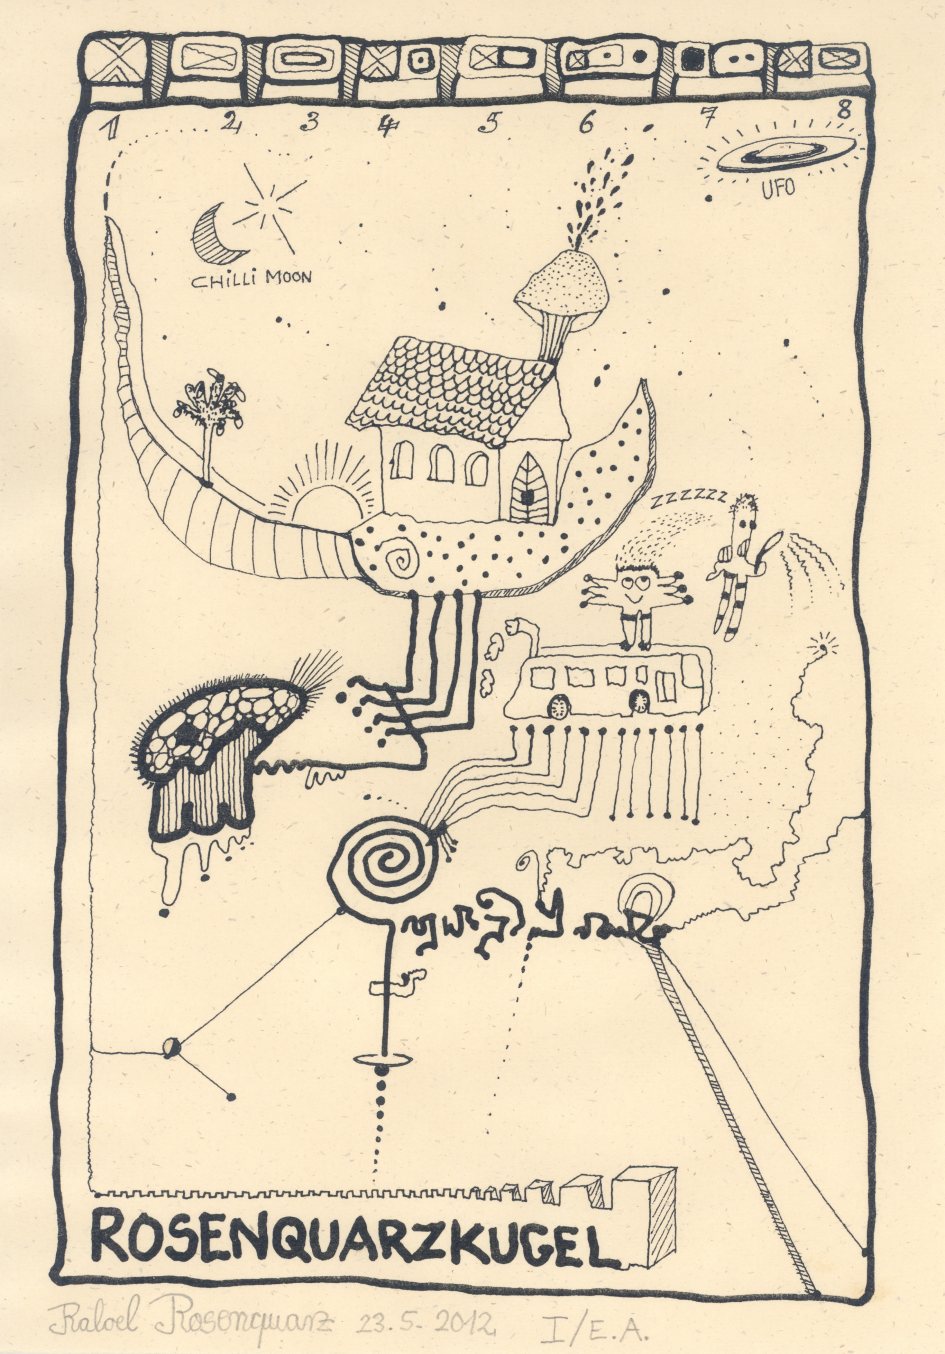 1 2 3 4 5 6 7 8
UFO
CHILLI MOON
ZZZZZZZ
ROSENQUARZKUGEL
Rosenquarz 23.5.2012 I/E.A.